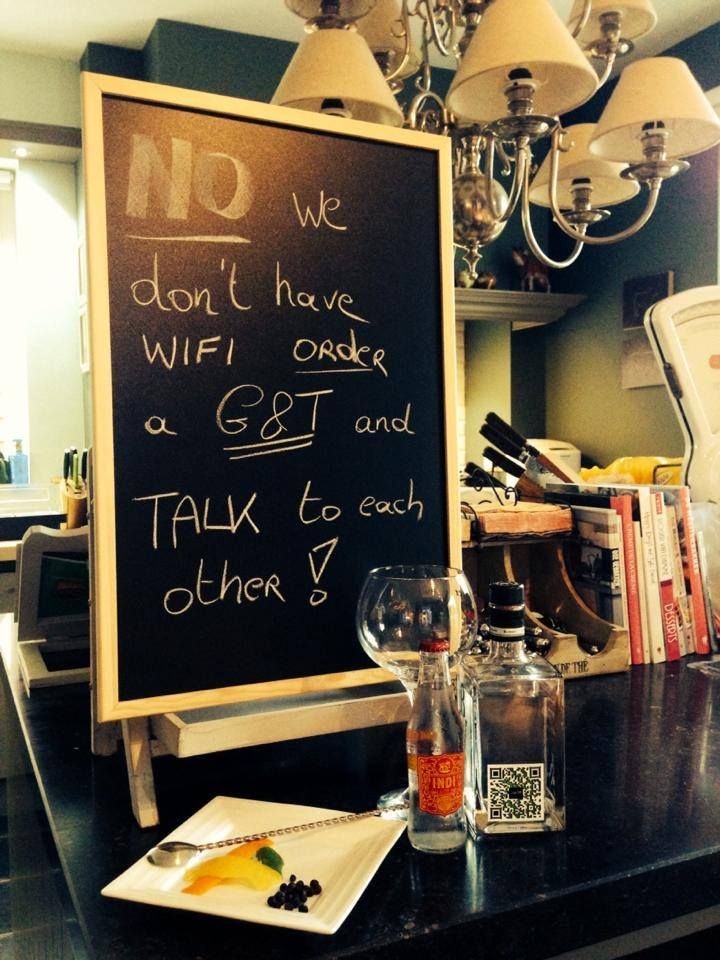 NO we
don't have
WIFI order
a G&T and
TALK to each
other!
INDI
DESSERTS
OF THE